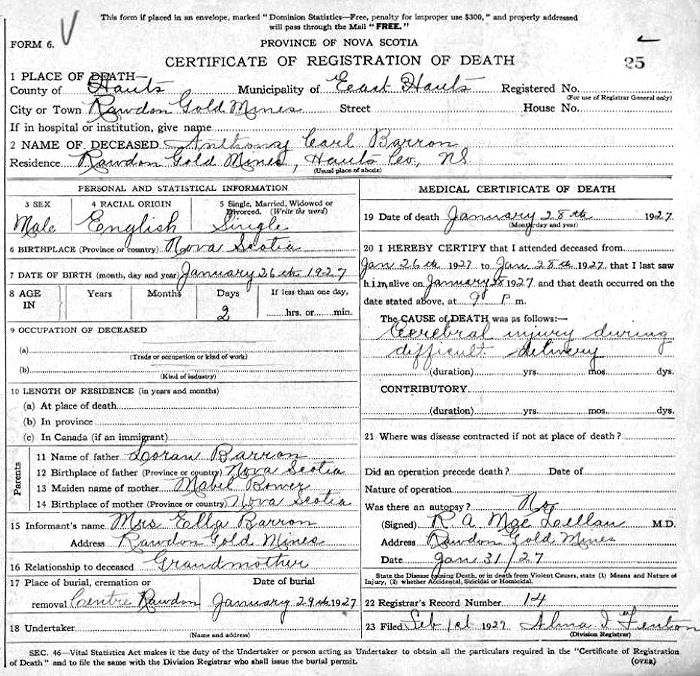 This form if placed in an envelope, marked "Dominion Statistics—Free, penalty for improper use $300," and properly addressed
will pass through the Mail "FREE."
FORM 6. V
PROVINCE OF NOVA SCOTIA
CERTIFICATE OF REGISTRATION OF DEATH 25
1 PLACE OF DEATH—
County of Hants Municipality of East Hants Registered No.
(For use of Registrar General only)
City or Town Rawdon Gold Mines Street House No.
If in hospital or institution, give name
2 NAME OF DECEASED Anthony Carl Barron
Residence Rawdon Gold Mines, Hants Co, NS
(Usual place of abode)
PERSONAL AND STATISTICAL INFORMATION
3 SEX 4 RACIAL ORIGIN 5 Single, Married, Widowed or
Divorced. (Write the word)
Male English Single
6 BIRTHPLACE (Province or country) Nova Scotia
7 DATE OF BIRTH (month, day and year) January 26th 1927
8 AGE IN Years Months Days If less than one day,
2 hrs. or min.
9 OCCUPATION OF DECEASED
(a)
(Trade or occupation or kind of work)
(b)
(Kind of industry)
10 LENGTH OF RESIDENCE (in years and months)
(a) At place of death
(b) In province
(c) In Canada (if an immigrant)
Parents
11 Name of father Loran Barron
12 Birthplace of father (Province or country) Nova Scotia
13 Maiden name of mother Mabel Bower
14 Birthplace of mother (Province or country) Nova Scotia
15 Informant's name Mrs Ella Barron
Address Rawdon Gold Mines
16 Relationship to deceased Grandmother
17 Place of burial, cremation or Date of burial
removal Centre Rawdon January 29th 1927
18 Undertaker
(Name and address)
MEDICAL CERTIFICATE OF DEATH
19 Date of death January 28th 1927
(Month, day and year)
20 I HEREBY CERTIFY that I attended deceased from
Jan 26th 1927 to Jan 28th 1927, that I last saw
him, alive on January 28 1927 and that death occurred on the
date stated above, at 9 P.m.
The CAUSE OF DEATH was as follows:—
Cerebral injury during
difficult delivery
(duration) yrs. mos. dys.
CONTRIBUTORY
(duration) yrs. mos. dys.
21 Where was disease contracted if not at place of death?
Did an operation precede death? Date of
Nature of operation
Was there an autopsy? No
(Signed) R A MacLellan M.D.
Address Rawdon Gold Mines
Date Jan 31/27
State the Disease Causing Death, or in death from Violent Causes, state (1) Means and Nature of
Injury, (2) whether Accidental, Suicidal or Homicidal.
22 Registrar's Record Number 14
23 Filed Feb 1st 1927 Alma I Fenton
(Division Registrar)
SEC. 46—Vital Statistics Act makes it the duty of the Undertaker or person acting as Undertaker to obtain all the particulars required in the "Certificate of Registration
of Death" and to file the same with the Division Registrar who shall issue the burial permit. (OVER)